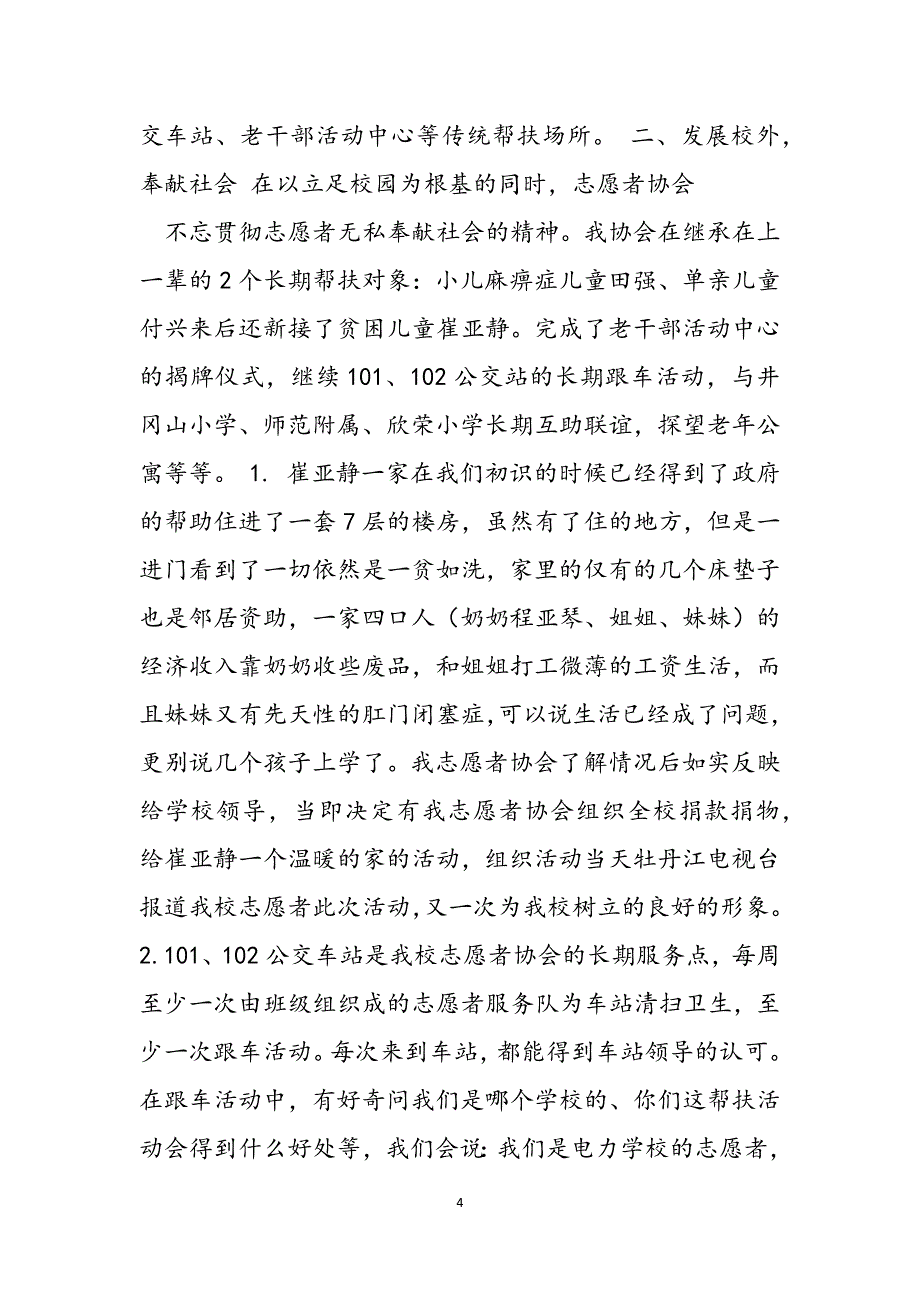 交车站、老干部活动中心等传统帮扶场所。 二、发展校外，
奉献社会 在以立足校园为根基的同时，志愿者协会
不忘贯彻志愿者无私奉献社会的精神。我协会在继承在上
一辈的2个长期帮扶对象：小儿麻痹症儿童田强、单亲儿童
付兴来后还新接了贫困儿童崔亚静。完成了老干部活动中心
的揭牌仪式，继续101、102公交站的长期跟车活动，与井
冈山小学、师范附属、欣荣小学长期互助联谊，探望老年公
寓等等。 1. 崔亚静一家在我们初识的时候已经得到了政府
的帮助住进了一套7层的楼房，虽然有了住的地方，但是一
进门看到了一切依然是一贫如洗，家里的仅有的几个床垫子
也是邻居资助，一家四口人（奶奶程亚琴、姐姐、妹妹）的
经济收入靠奶奶收些废品，和姐姐打工微薄的工资生活，而
且妹妹又有先天性的肛门闭塞症，可以说生活已经成了问题，
更别说几个孩子上学了。我志愿者协会了解情况后如实反映
给学校领导，当即决定有我志愿者协会组织全校捐款捐物，
给崔亚静一个温暖的家的活动，组织活动当天牡丹江电视台
报道我校志愿者此次活动，又一次为我校树立的良好的形象。
2.101、102公交车站是我校志愿者协会的长期服务点，每周
至少一次由班级组织成的志愿者服务队为车站清扫卫生，至
少一次跟车活动。每次来到车站，都能得到车站领导的认可。
在跟车活动中，有好奇问我们是哪个学校的、你们这帮扶活
动会得到什么好处等，我们会说：我们是电力学校的志愿者，
4